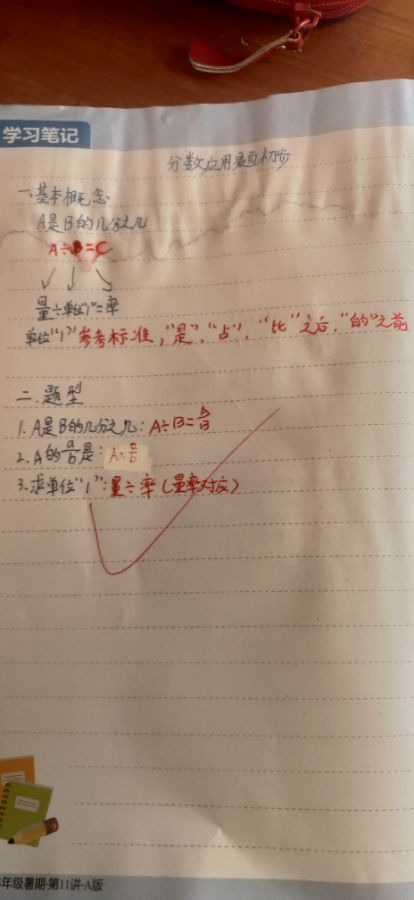 学习笔记
分数应用题初步
一.基本概念
A是B的几分之几
A÷B=C
↙ ↓ ↘
量÷单位"1"=率
单位"1"参考标准,"是","占","比"之后,"的"之前
二.题型
1.A是B的几分之几:A÷B=A/B
2.A的a/b是:
3.求单位"1":量÷率(量率对应)
年级暑期·第11讲·A版